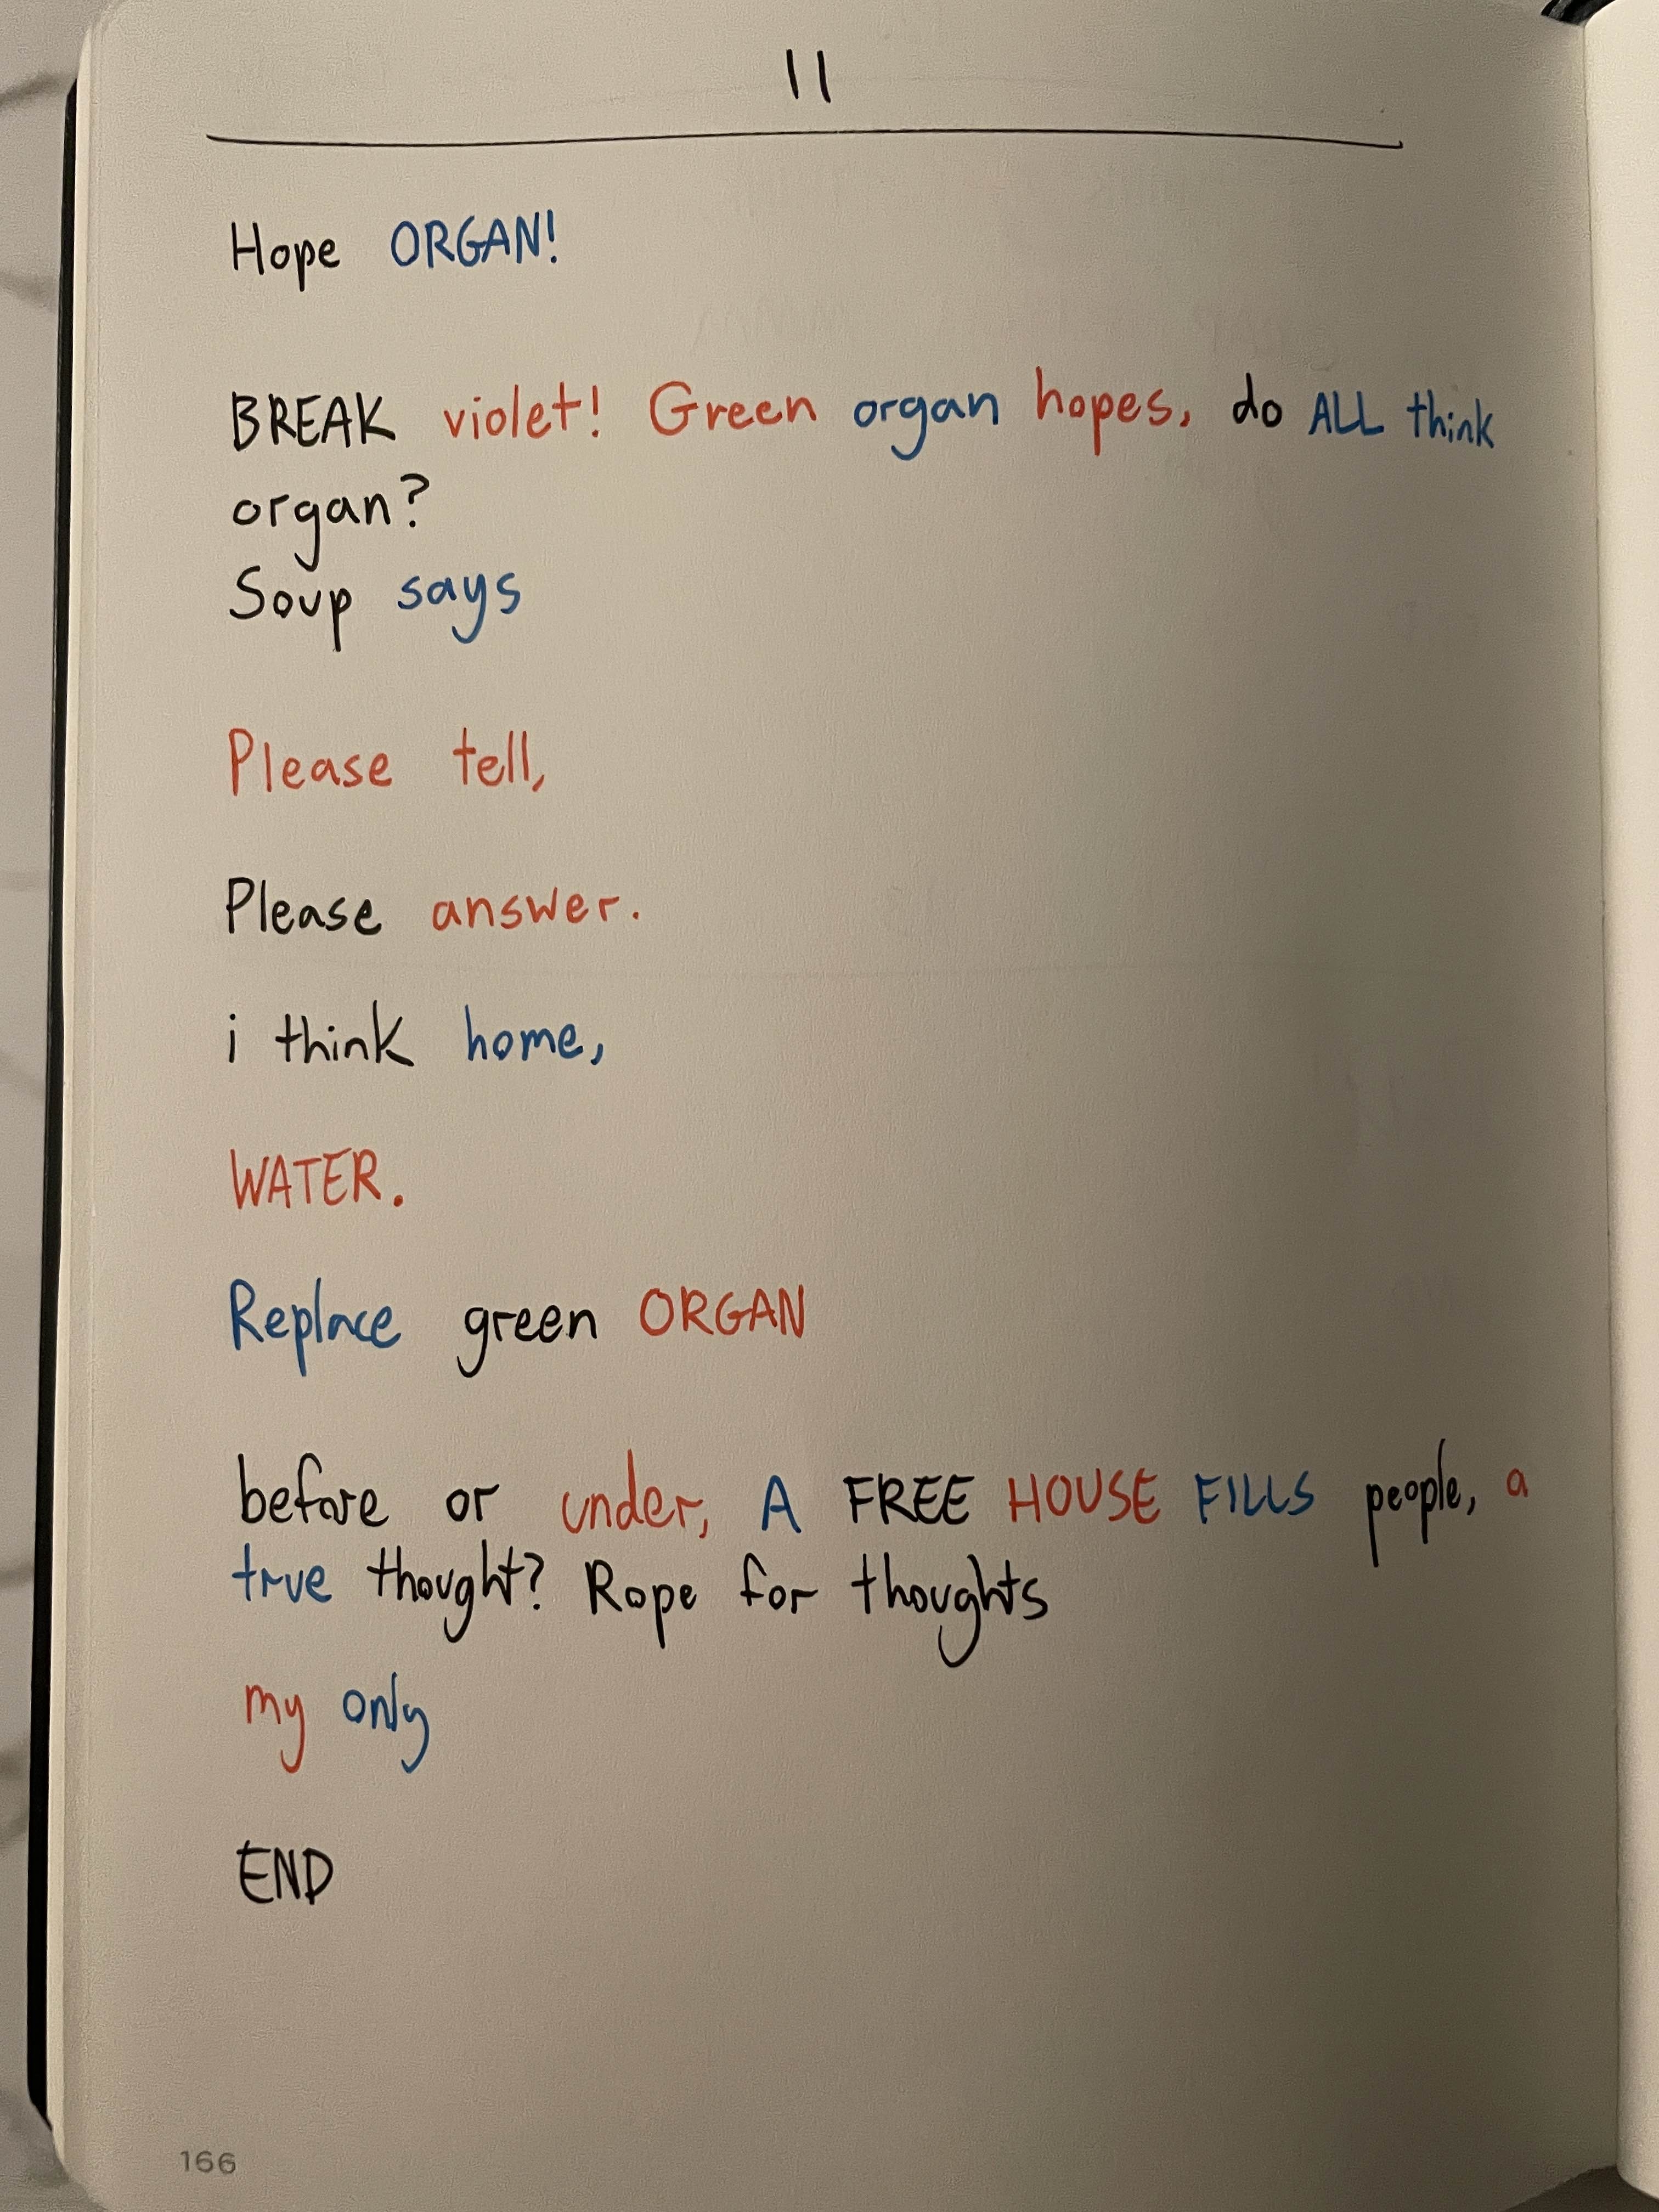 11
Hope ORGAN!
BREAK violet! Green organ hopes, do ALL think
organ?
Soup says
Please tell,
Please answer.
i think home,
WATER.
Replace green ORGAN
before or under, A FREE HOUSE FILLS people, a
true thought? Rope for thoughts
my only
END
166